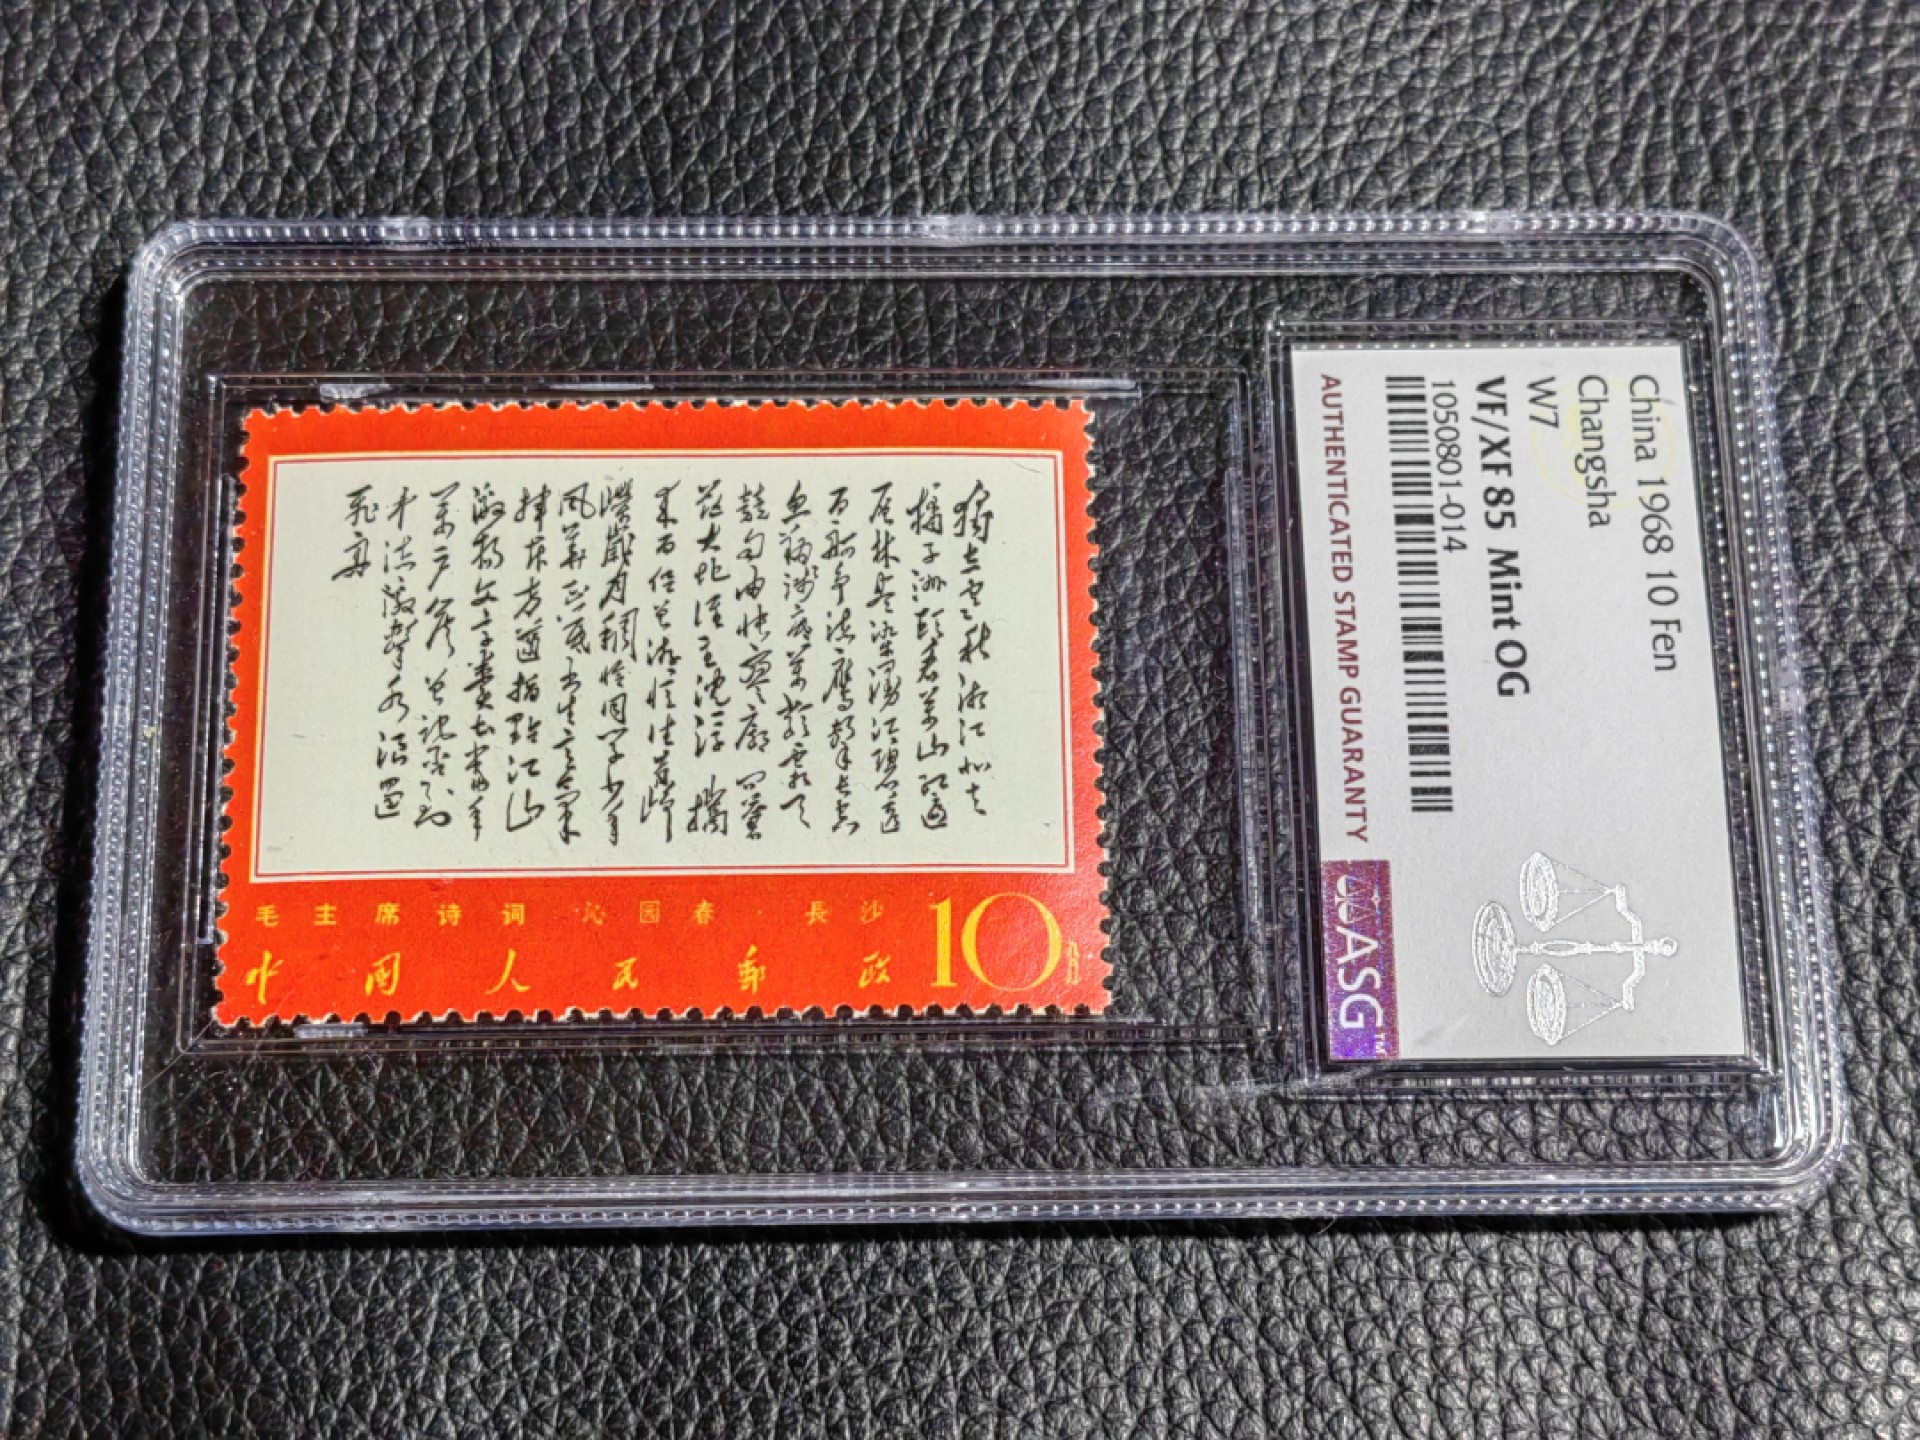 獨立寒秋湘江北去
橘子洲頭看萬山紅遍
层林尽染漫江碧透
百舸争流鹰擊長空
魚翔浅底萬類霜天
競自由怅寥廓问蒼
茫大地谁主沉浮携
来百侣曾游憶往昔峥
嵘歲月稠恰同学少年
风華正茂书生意气
挥斥方遒指點江山
激揚文字糞土當年
萬户侯曾記否到
中流激擊水浪遏
飛舟
毛主席诗词·沁园春·長沙
中國人民郵政
10分
China 1968 10 Fen
Changsha
W7
VF/XF 85 Mint OG
1050801-014
AUTHENTICATED STAMP GUARANTY
ASG™